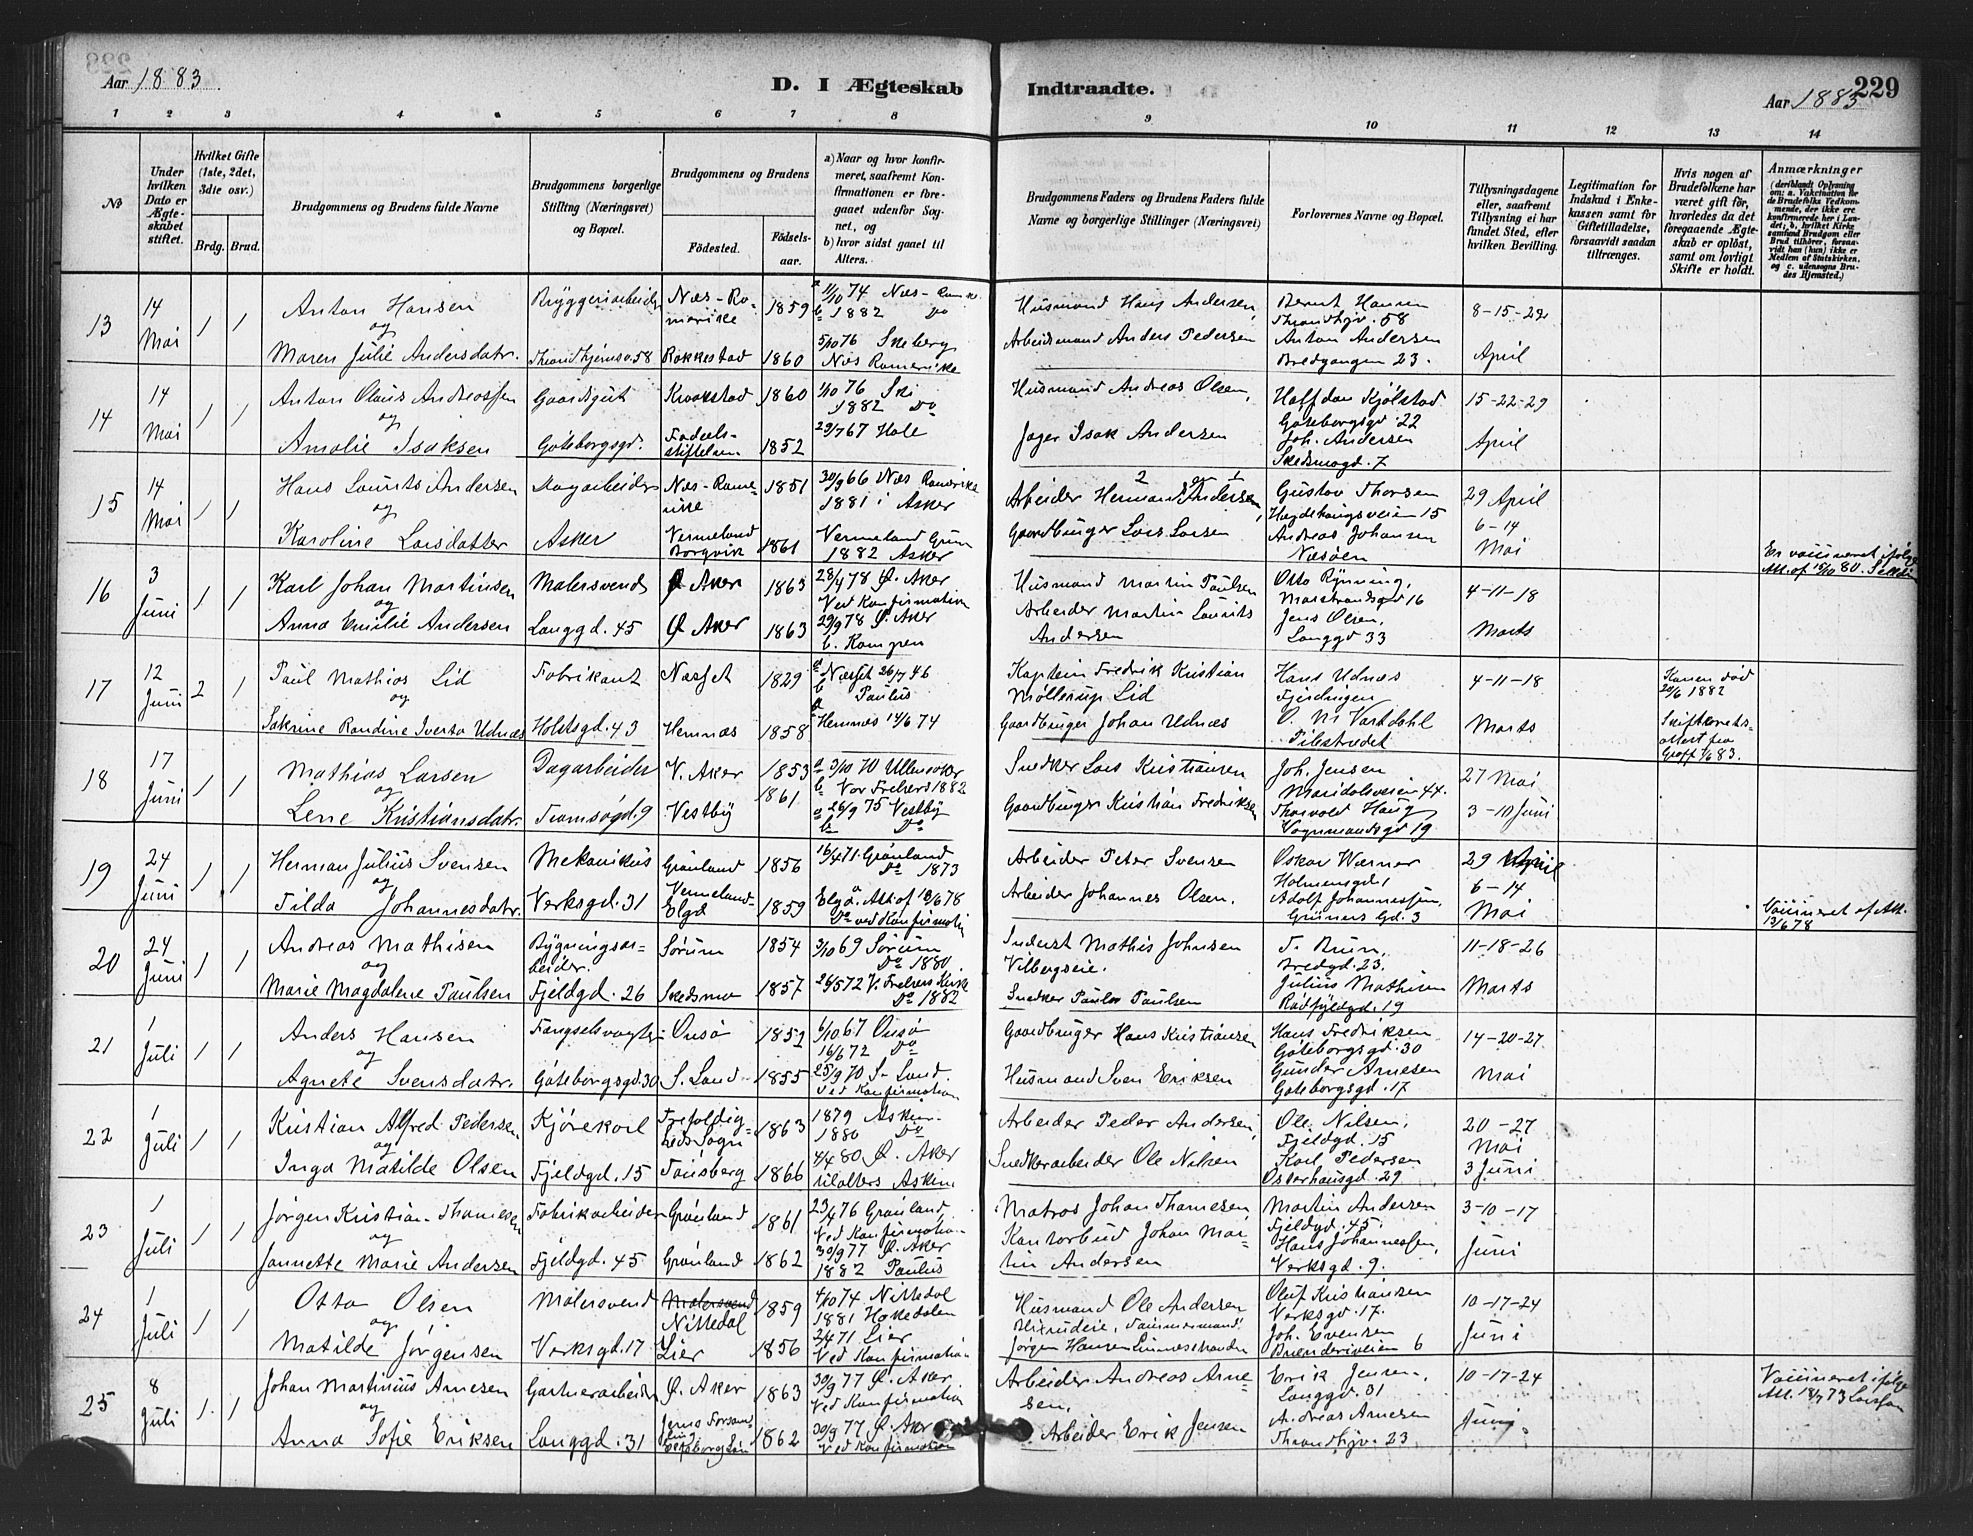 Aar 1883.
D. I Ægteskab Indtraadte.
229
Aar 1883
1 2 3 4 5 6 7 8 9 10 11 12 13 14
No
Under hvilken Dato er Ægteskabet stiftet.
Hvilket Gifte (1ste, 2det, 3die osv.)
Brdg. Brud.
Brudgommens og Brudens fulde Navne
Brudgommens borgerlige Stilling (Næringsvei) og Bopæl.
Brudgommens og Brudens
Fødested. Fødselsaar.
a) Naar og hvor konfirmeret, saafremt Konfirmationen er foregaaet udenfor Sognet, og
b) hvor sidst gaaet til Alters.
Brudgommens Faders og Brudens Faders fulde Navne og borgerlige Stillinger (Næringsvei)
Forlovernes Navne og Bopæl.
Tillysningsdagene eller, saafremt Tillysning ei har fundet Sted, efter hvilken Bevilling.
Legitimation for Indskud i Enkekassen samt for Giftetilladelse, forsaavidt saadan tiltrænges.
Hvis nogen af Brudefolkene har været gift før, hvorledes da det foregaaende Ægteskab er opløst, samt om lovligt Skifte er holdt.
Anmærkninger
(deriblandt Oplysning om: a. Vakcination for de Brudefolks Vedkommende, der ikke ere konfirmerede her i Landet; b. hvilket Kirkesamfund Brudgom eller Brud tilhører, forsaavidt han (hun) ikke er Medlem af Statskirken, og c. udensogns Brudes Hjemsted.)
13 14 Mai 1 1 Anton Hansen Bryggeriarbeider Næs-Romerike 1859 a 11/10 74 Næs-Romr. b 1882 Do Husmand Hans Andersen, Bernt Hansen Throndhjv. 58 8-15-22 April
og
Maren Julie Andersdatr. Throndhjemsv. 58 Rakkestad 1860 5/10 76 Skeberg Næs Romerike Arbeidsmand Anders Pedersen Anton Andersen Bredgangen 23.
14 14 Mai 1 1 Anton Olaus Andreassen Gaardsgut Kraakstad 1860 1/10 76 Ski 1882 Do Husmand Andreas Olsen, Haffdan Kjølstad Gøteborgsgd. 22 15-22-29 April
og
Amalie Isaksen Gøteborgsgd. Fødselsstiftelsen 1852 29/7 67 Hole Jæger Isak Andersen Joh. Andersen Skedsmogd. 7
15 14 Mai 1 1 Hans Laurits Andersen Dagarbeider Næs-Romerike 1851 30/9 66 Næs Romerike 1881 i Asker Arbeider Herman Andersen, Gustav Thorsen Hægdehaugsveien 15 29 April 6-14 Mai
og
Karoline Larsdatter Asker Vermeland Borgvik 1861 Vermeland Grum 1882 Asker Gaardbruger Lars Larsen Andreas Johansen Næsøen
16 3 Juni 1 1 Karl Johan Martinsen Malersvend Ø. Aker 1863 28/4 78 Ø. Aker Ved Konfirmation Husmand Martin Paulsen Otto Rynning, Marstrandsgd 16 4-11-18 Marts Er vaccineret ifølge Att. af 15/10 80.
og
Anna Emilie Andersen Langgd. 45 Ø. Aker 1863 29/9 78 Ø. Aker b. Kampen Arbeider Martin Laurits Andersen Jens Olsen, Langgd 33
17 12 Juni 2 1 Paul Mathias Lid Fabrikant Næsset 1829 a Næsset 26/7 46 b Paulus Kaptein Fredrik Kristian Møllerup Lid Hans Udnæs Fjerdingen 4-11-18 Marts Konen død 20/6 1882
og
Sakrine Randine Iverta Udnæs Holstsgd. 43 Hemnæs 1858 Hemnæs 14/6 74 Gaardbruger Johan Udnæs O. M. Vartdahl Pilestrædet Skifteretsattest fra 1/6 83.
18 17 Juni 1 1 Mathias Larsen Dagarbeider V. Aker 1853 a 3/10 70 Ullensaker b Vor Frelsers 1882 Snedker Lars Kristiansen Joh. Jensen Maridalsveien 44. 27 Mai 3-10 Juni
og
Lene Kristiansdatr. Tromsøgd. 9 Vestby 1861 a 26/9 75 Vestby b Do Gaardbruger Kristian Fredriksen Thorvald Haug, Vognmandsgd 19
19 24 Juni 1 1 Herman Julius Svensen Mekanikus Grønland 1856 16/4 71 Grønland Do 1873 Arbeider Peter Svensen Oskar Werner Holmensgd 1 29 April 6-14 Mai
og
Tilda Johannesdatr. Verksgd. 31 Vermeland Elgå 1859 Elgå Att. af 13/6 78 Do ved Konfirmation Arbeider Johannes Olsen. Adolf Johannessen, Grüners Gd. 3 Vaccineret af Att. 13/6 78
20 24 Juni 1 1 Andreas Mathisen Bygningsarbeider. Sørum 1854 3/10 69 Sørum Do 1880 Inderst Mathis Johnsen Vilbergseie. F. Brun, Bredgd. 23. 11-18-26 Marts
og
Marie Magdalene Paulsen Fjeldgd. 26 Skedsmo 1857 26/5 72 V. Frelsers Kirke Do 1882 Snedker Paulus Paulsen Julius Mathisen Rødfyldgd. 19
21 1 Juli 1 1 Anders Hansen Fængselsvogter Onsø 1852 6/10 67 Onsø 16/6 72 Do Gaardbruger Hans Kristiansen Hans Fredriksen Gøteborgsgd. 30 14-20-27 Mai
og
Agnete Svensdatr. Gøteborgsgd. 30 S. Land 1855 25/9 70 S. Land Ved Konfirmation Husmand Sven Eriksen Gunder Arnesen Gøteborgsgd. 17
22 1 Juli 1 1 Kristian Alfred Pedersen Kjørekarl Trefoldigheds Sogn 1863 1879 Askim 1880 Do Arbeider Peder Andersen, Ole Nilsen, Fjeldgd. 15 20-27 Mai 3 Juni
og
Inga Matilde Olsen Fjeldgd. 15 Tønsberg 1866 4/4 80 Ø. Aker tilalters Askim Snedkerarbeider Ole Nilsen Karl Pedersen Osterhausgd. 29
23 1 Juli 1 1 Jørgen Kristian Thomesen Fabrikarbeider Grønland 1861 23/4 76 Grønland Ved Konfirmation Matros Johan Thomesen, Martin Andersen Fjeldgd. 45. 3-10-17 Juni
og
Jannette Marie Andersen Fjeldgd. 45 Grønland 1862 30/9 77 Ø. Aker 1882 Paulus Kontorbud Johan Martin Andersen Hans Johannessen, Verksgd. 9.
24 1 Juli 1 1 Otto Olsen Malersvend Malersvend Nittedal 1859 4/10 74 Nittedal 1881 Hakedalen Husmand Ole Andersen Slixrudeie, Oluf Kristiansen Verksgd. 17. 10-17-24 Juni
og
Matilde Jørgensen Verksgd. 17 Lier 1856 2/4 71 Lier Ved Konfirmation Tømmermand Jørgen Hansen Linnesstranden Joh. Evensen Brænderiveien 6
25 8 Juli 1 1 Johan Martinius Arnesen Gartnerarbeider Ø. Aker 1863 30/9 77 Ø. Aker Ved Konfirmation Arbeider Andreas Arnesen, Erik Jensen, Langgd. 31 10-17-24 Juni Vaccineret ifølge Att. 18/7 73
og
Anna Sofie Eriksen Langgd. 31 1862 30/9 77 Ø. Aker Ved Konfirmation Arbeider Erik Jensen Andreas Arnesen Throndhjv. 23